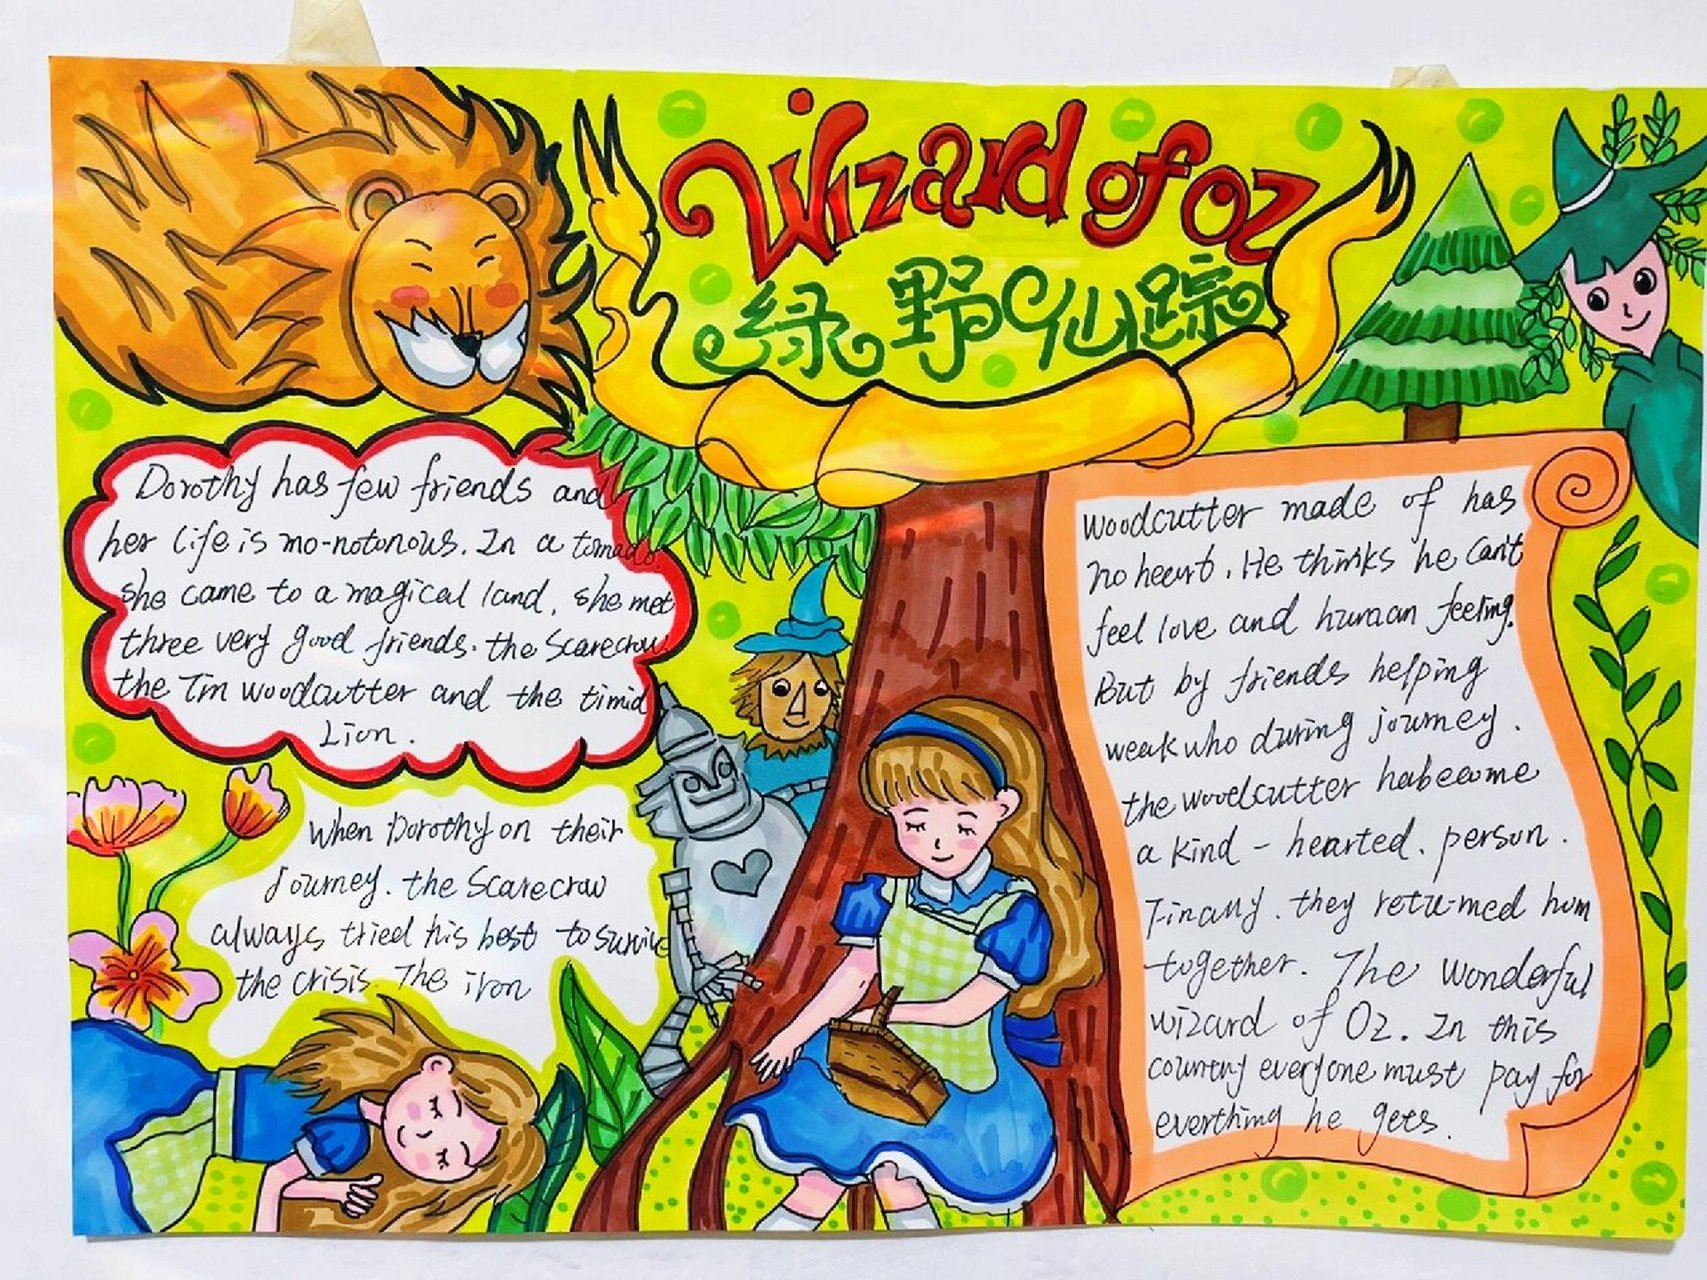 Wizard of Oz
绿野仙踪
Dorothy has few friends and
her life is mo-notonous. In a tornado
she came to a magical land, she met
three very good friends. the Scarecrow
the Tin woodcutter and the timid
Lion.
When Dorothy on their
Journey. the Scarecrow
always tried his best to survive
the crisis. The iron
woodcutter made of has
no heart. He thinks he can't
feel love and human feeling.
But by friends helping
weak who during journey.
the woodcutter habecome
a kind - hearted. person.
Finally. they retu-rned hom
together. The wonderful
wizard of Oz. In this
country everyone must pay for
everthing he gets.